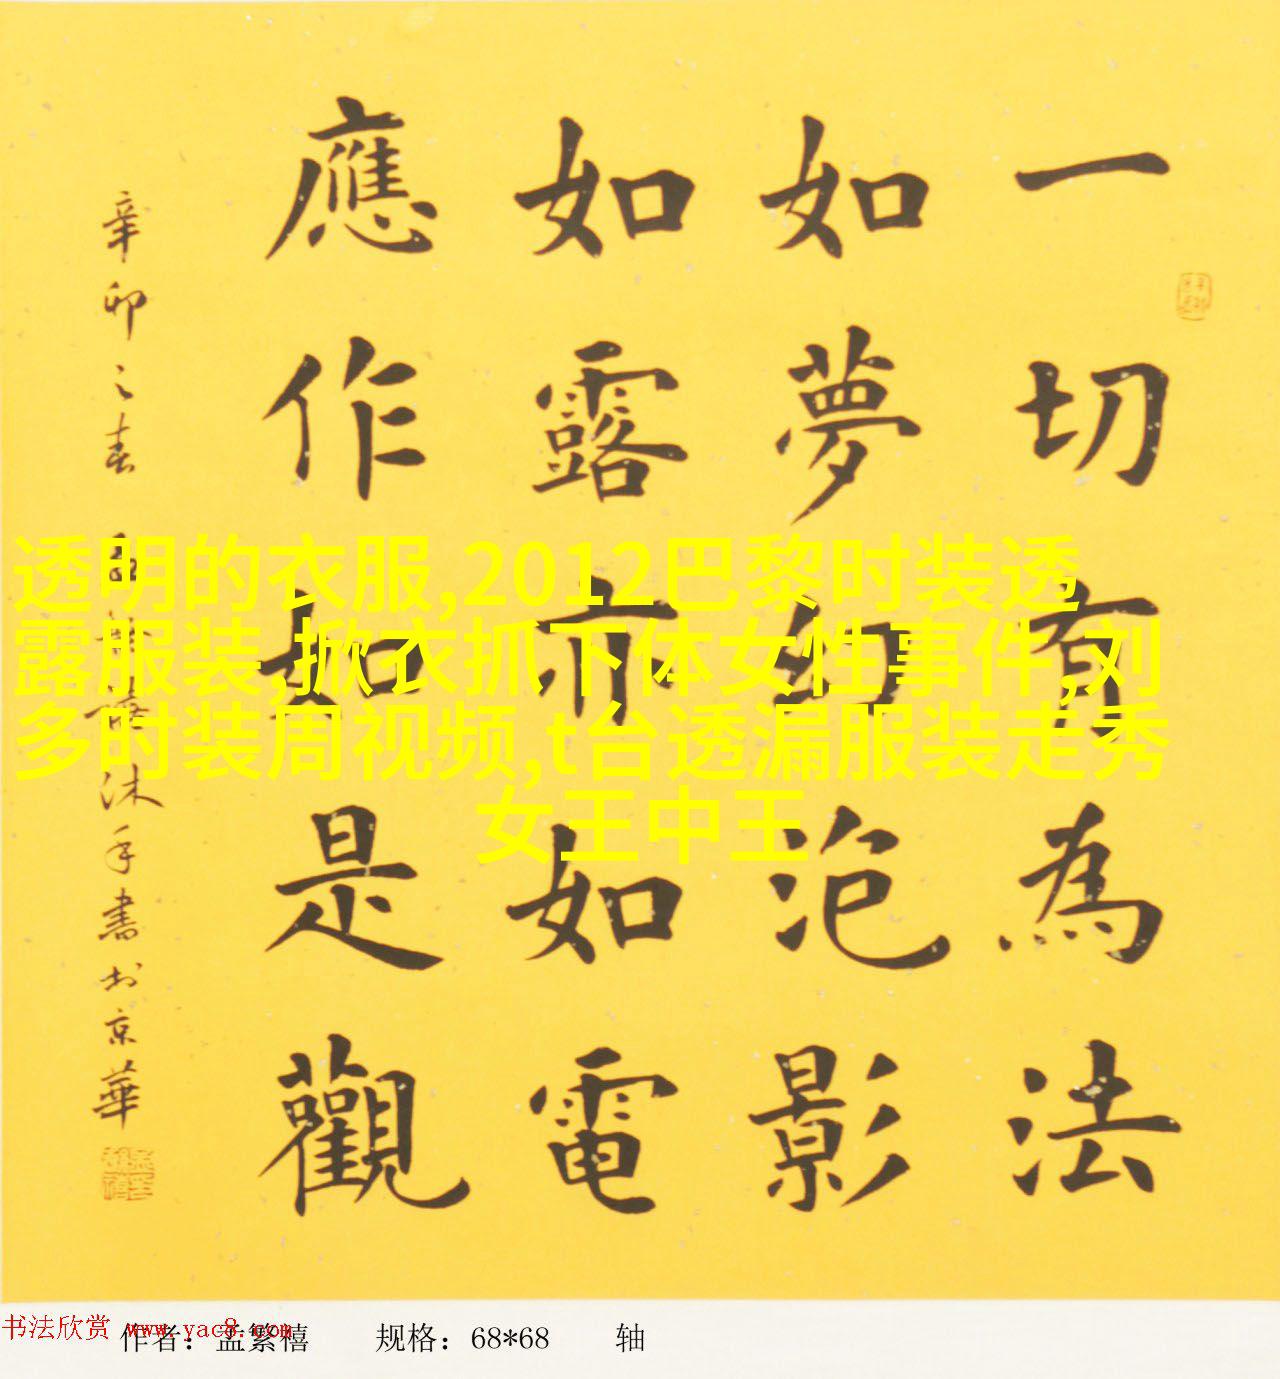 一切有為法
如夢幻泡影
如露亦如電
應作如是觀
辛卯之春 孟繁禧沐手書於京華
透明的衣服,2012巴黎时装透
露服装,掀衣抓下体女性事件,刘
多时装周视频,t台透漏服装走秀
女王中王
书法欣赏 www.yac8.com
作者：孟繁禧 规格：68*68 轴